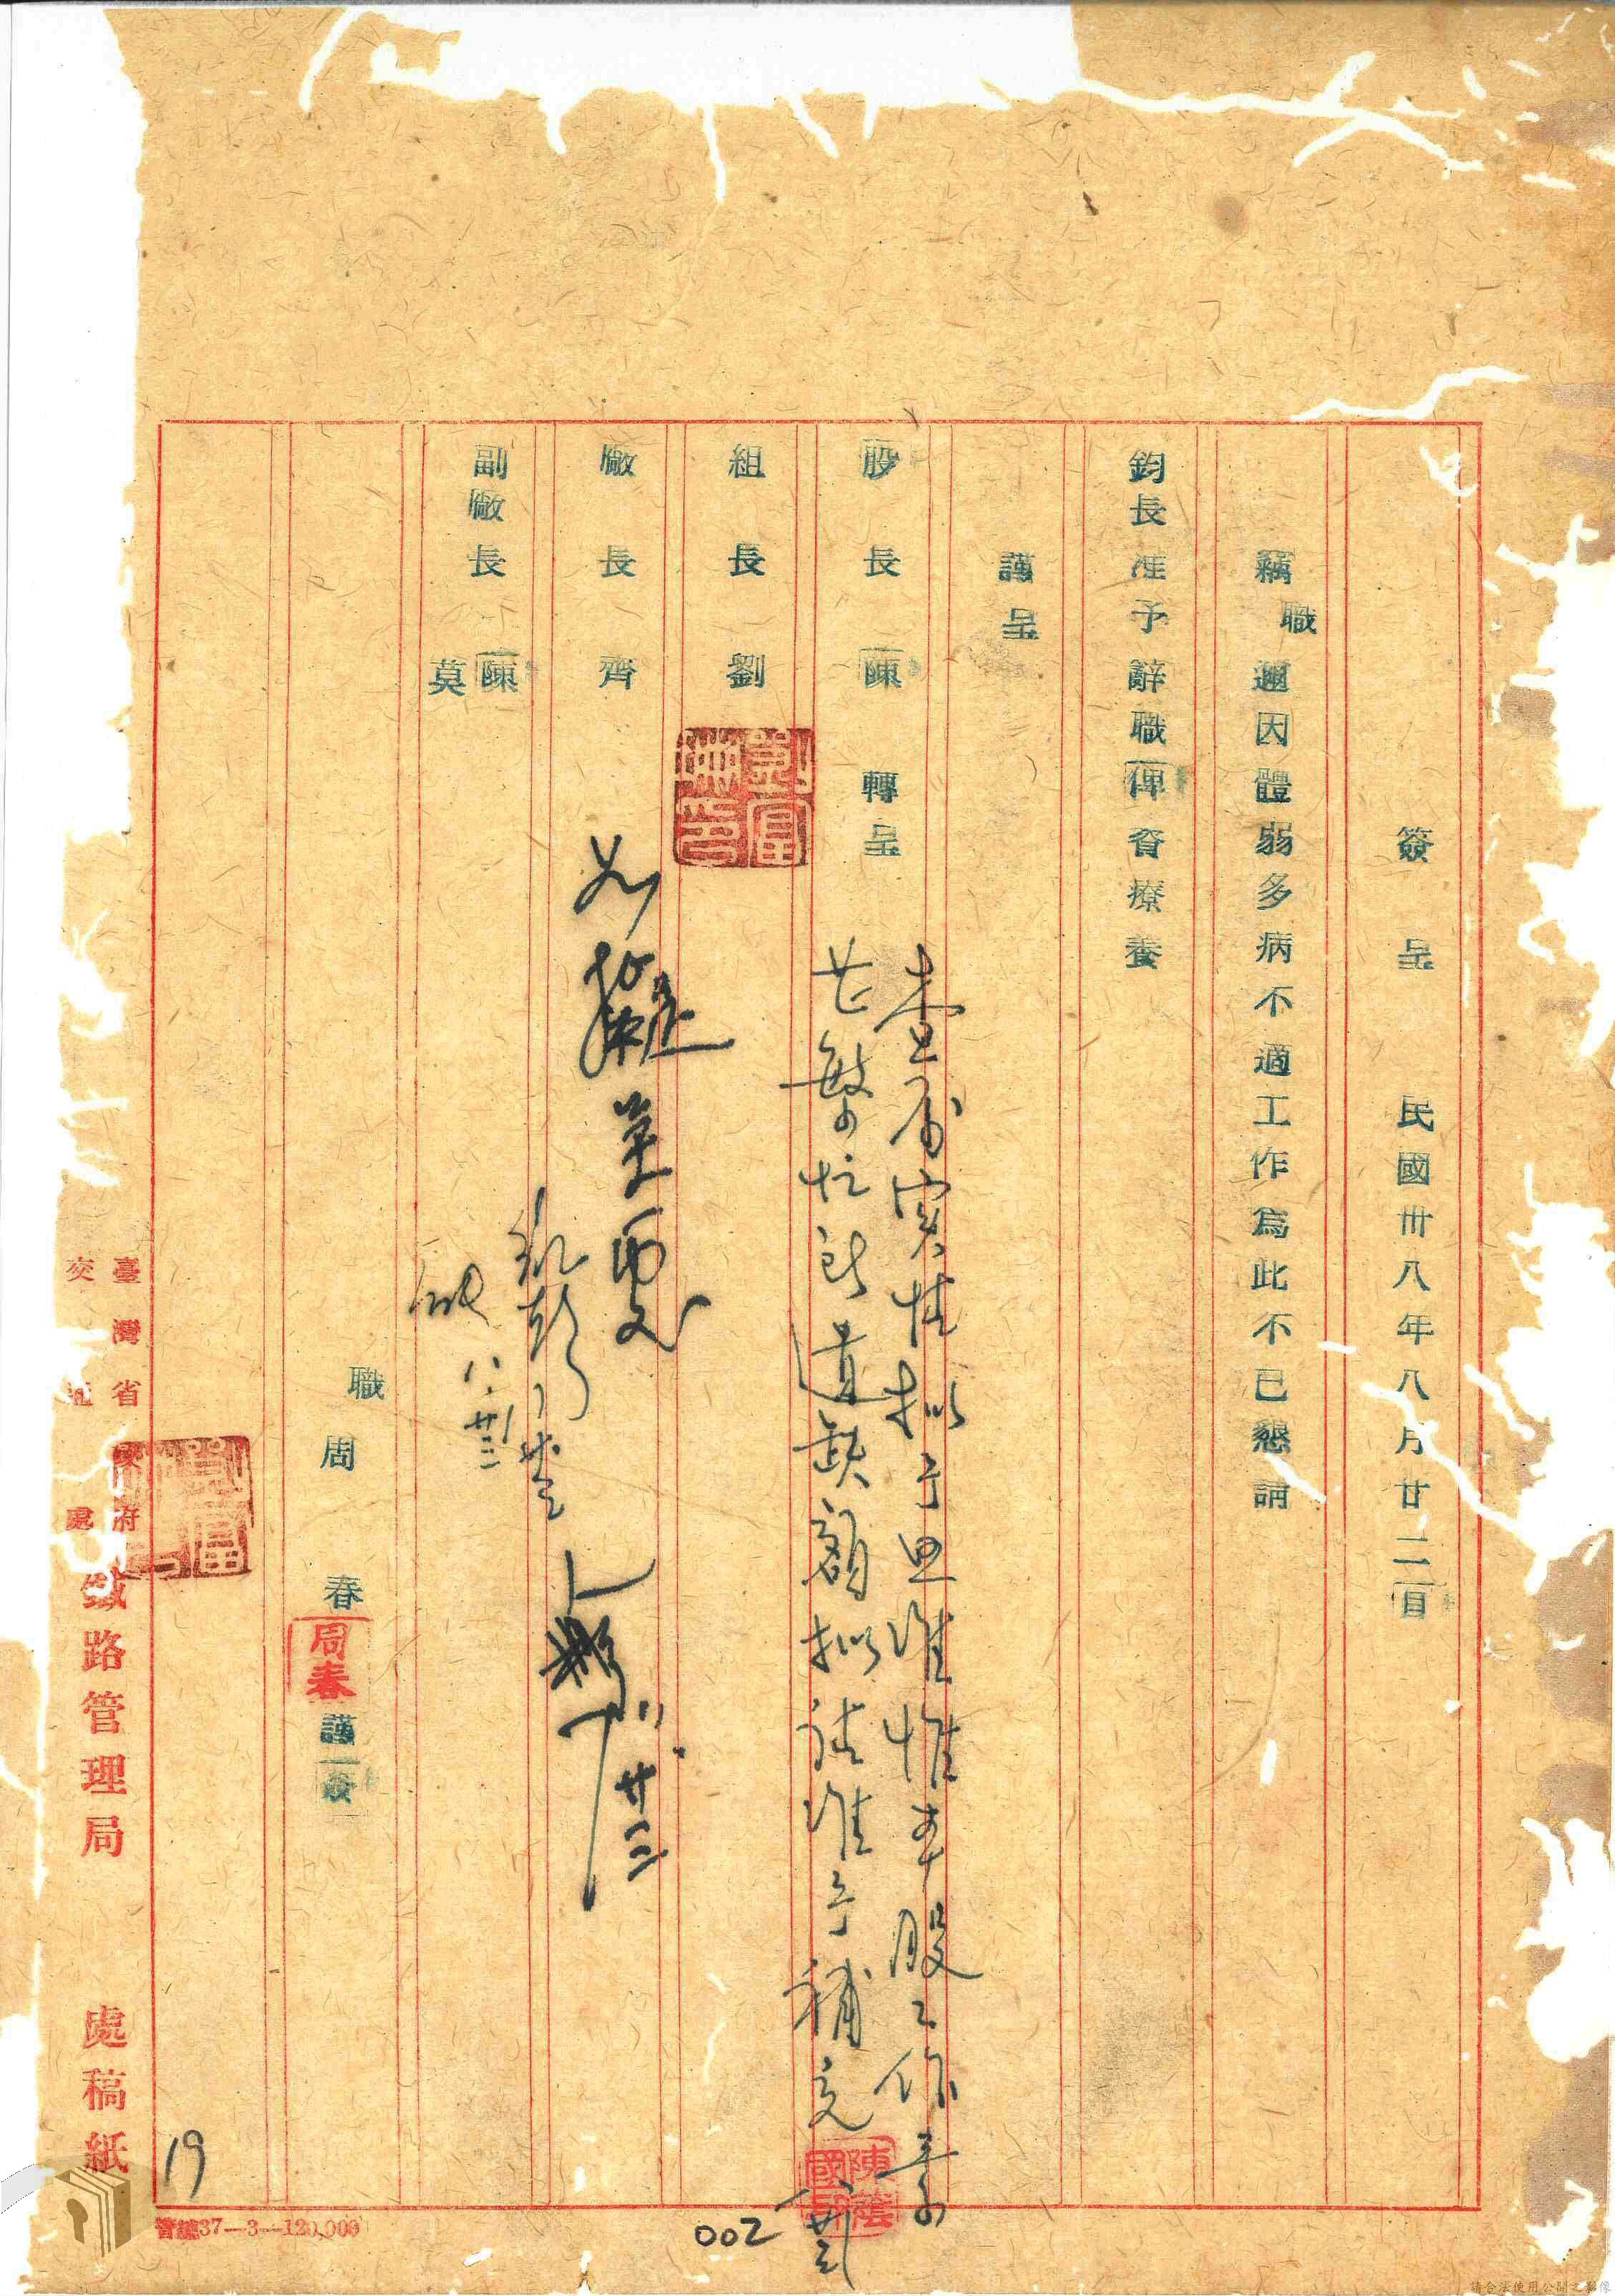 簽呈 民國卅八年八月廿二日
竊職邇因體弱多病不適工作為此不已懇請
鈞長准予辭職俾資療養
謹呈
股長陳 轉呈
組長劉
廠長齊
副廠長陳
莫
職周春 謹簽
周春
查屬實情拟予照准惟本股工作素
甚繁忙所遺缺額拟請准予補充
八 廿二
如擬
八.廿三
八.廿三
臺灣省政府
交通處
鐵路管理局 處稿紙
19
002
37—3—120,000
請合法使用公開之影像